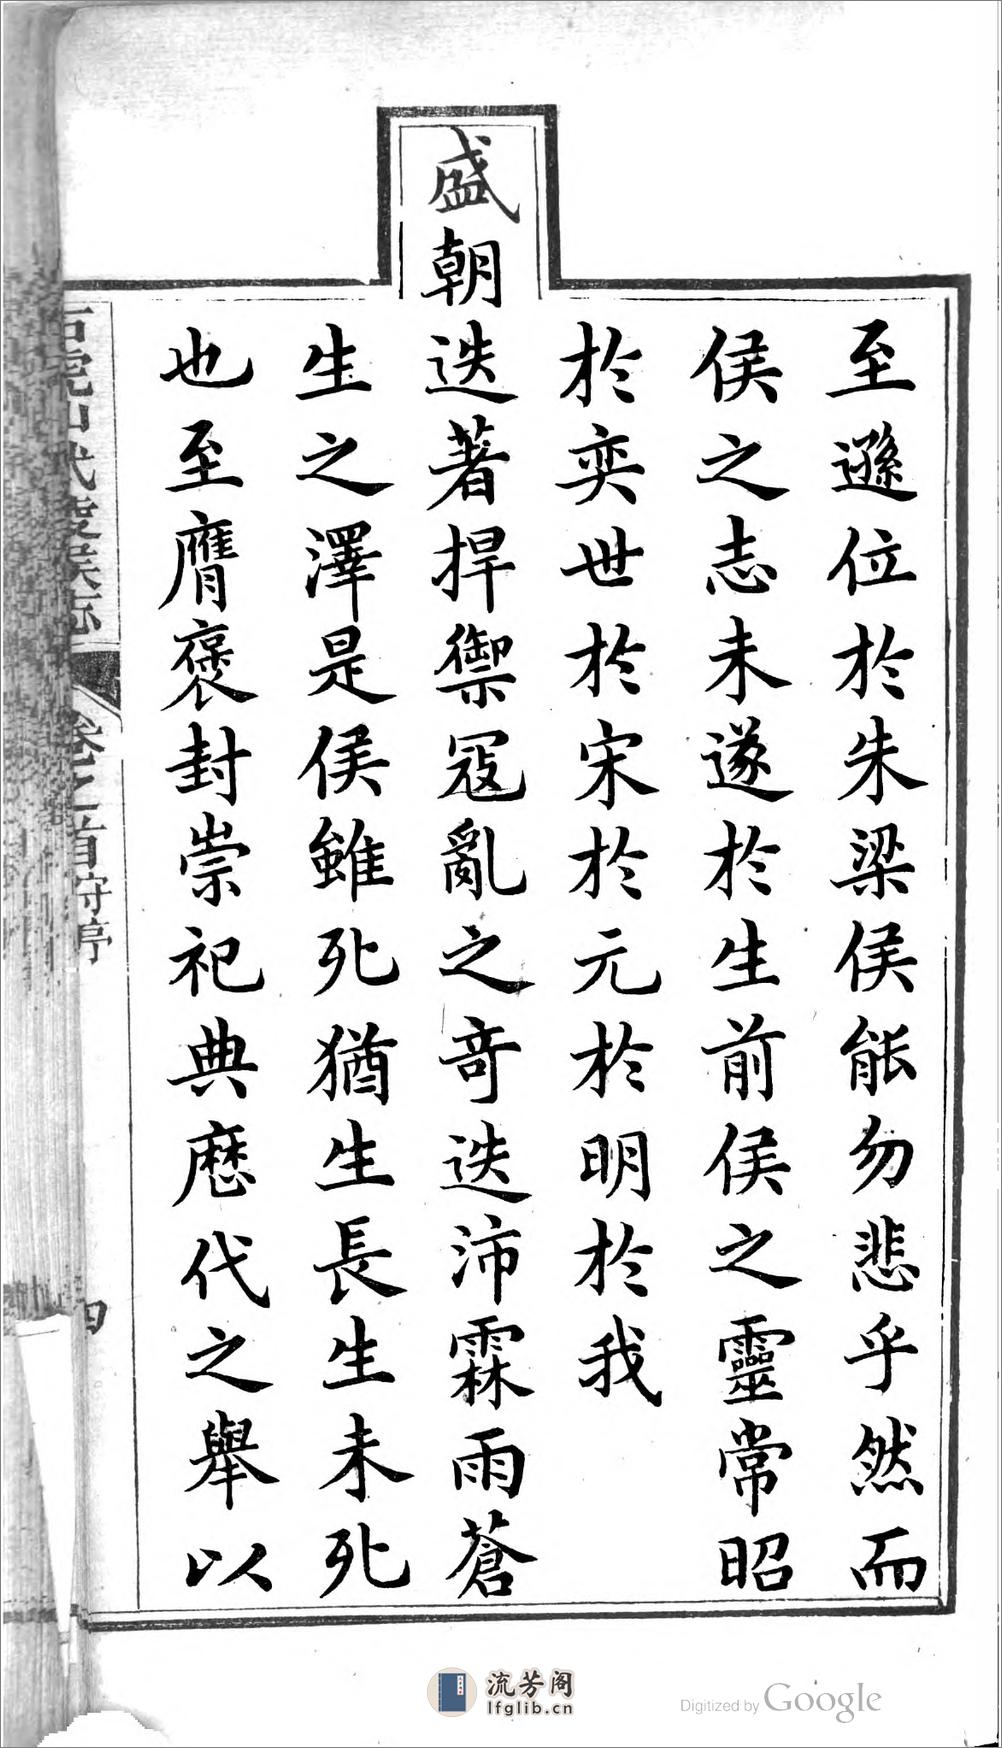 至遜位於朱梁侯能勿悲乎然而
侯之志未遂於生前侯之靈常昭
於奕世於宋於元於明於我
盛朝迭著捍禦寇亂之奇迭沛霖雨蒼
生之澤是侯雖死猶生長生未死
也至膺褒封崇祀典歷代之舉以
卷之首 守亭
四
流芳阁
lfglib.cn
Digitized by Google